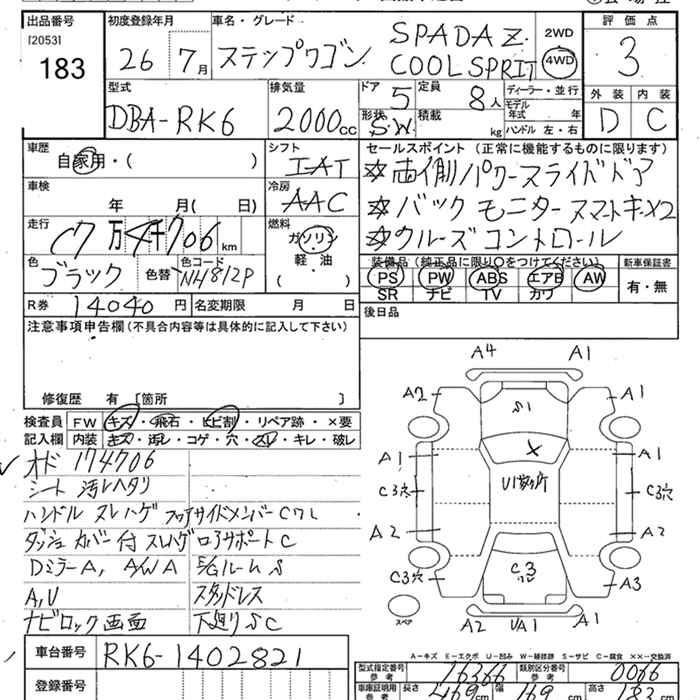 出品番号 初度登録年月 車名・グレード 評価点
[2053] 183 26 7月 ステップワゴン SPADA Z 2WD 3
COOLSPRIT 4WD
外装 内装
型式 排気量 ドア 定員 ディーラー・並行
DBA-RK6 2000cc 5 8人 モデル年式 年 D C
形状 積載
S.W. kg ハンドル 左・右
車歴 シフト セールスポイント (正常に機能するものに限ります)
自家用・( ) IAT ☆両側パワースライドドア
車検 冷房 ☆バックモニター スマートキーX2
年 月( 日) AAC ☆クルーズコントロール
走行 燃料
17万4千706km ガソリン
軽・油
色 色替 色コード 装備品 (純正品に限り○をつけてください) 新車保証書
ブラック NH812P PS PW ABS エアB AW 有・無
SR ナビ TV カワ
R券 14040円 名変期限 月 日 後日品
注意事項申告欄(不具合内容等は具体的に記入して下さい)
修復歴 有 [箇所 ]
検査員 FW キズ・飛石・ヒビ割・リペア跡・×要
記入欄 内装 キズ・汚レ・コゲ・穴・スレ・キレ・破レ
オド 174706
シート 汚レヘタリ
ハンドル スレハゲ フロアサイドメンバーC7L
ダッシュカバー付 スレハゲ ロアサポートC
Dミラー A, A/W A
A,U スタッドレス
ナビロック画面 下廻りSC
A4 A1
A2 A1
S1
A1 X A1
C3穴 U1 C3穴
A2 A2
C3穴 C3 A3
スペア A2 UA1 A1
A-キズ E-エクボ U-凹み W-補修跡 S-サビ C-腐食 ××-交換済
車台番号 RK6-1402821
型式指定番号 参考 16366 類別区分番号 参考 0066
登録番号
車庫証明用 参考 長さ 469cm 幅 169cm 高さ cm